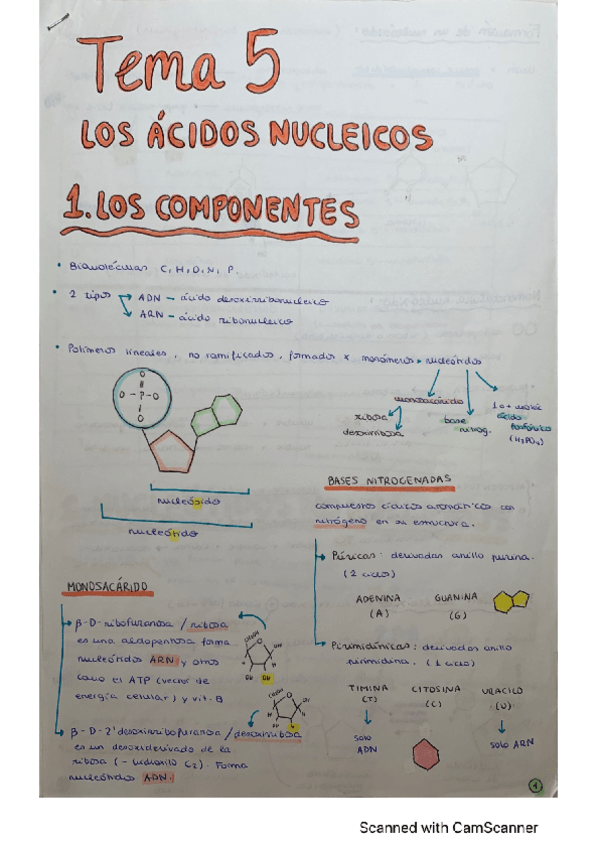 Tema 5
LOS ÁCIDOS NUCLEICOS
1. LOS COMPONENTES
• Biomoléculas C, H, O, N, P.
• 2 tipos → ADN – ácido desoxirribonucleico
→ ARN – ácido ribonucleico
• Polímeros lineales, no ramificados, formados x monómeros → nucleótidos
monosacárido
ribosa
desoxirribosa
base
nitróg.
1 o + moléc
ácido
fosfórico
(H3PO4)
O
O – P – O
O
nucleósido
nucleótido
MONOSACÁRIDO
β-D-ribofuranosa / ribosa
es una aldopentosa forma
nucleótidos ARN y otros
como el ATP (vector de
energía celular) y vit. B
OH OH
β-D-2'desoxirribofuranosa / desoxirribosa
es un desoxiderivado de la
ribosa (- hidroxilo C2). Forma
nucleótidos ADN.
BASES NITROGENADAS
compuestos cíclicos aromáticos con
nitrógeno en su estructura.
Púricas: derivadas anillo purina.
(2 ciclos)
ADENINA GUANINA
(A) (G)
Pirimidínicas: derivadas anillo
pirimidina. (1 ciclo)
TIMINA CITOSINA URACILO
(T) (C) (U)
solo
ADN
solo ARN
1
Scanned with CamScanner